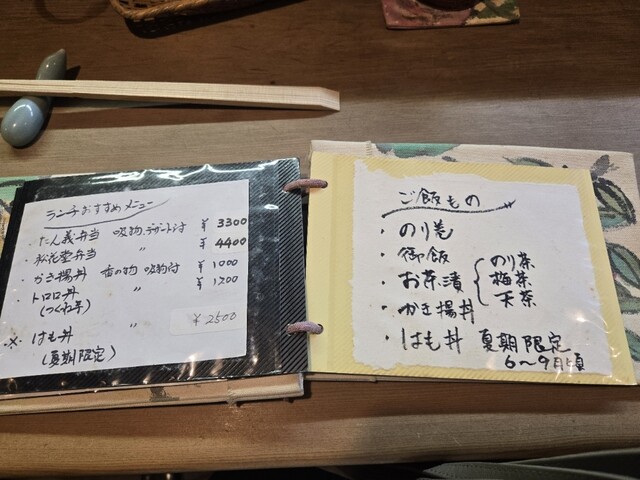 ランチおすすめメニュー
・たん義弁当 吸物,デザート付 ¥3300
・松花堂弁当 〃 ¥4400
・かき揚丼 香の物 吸物付 ¥1000
・トロロ丼 〃 ¥1200
(つくね芋)
※ はも丼 〃 ¥2500
(夏期限定)
ご飯もの
・のり巻
・御飯
・お茶漬 { のり茶
梅茶
天茶
・かき揚丼
・はも丼 夏期限定
6〜9月頃